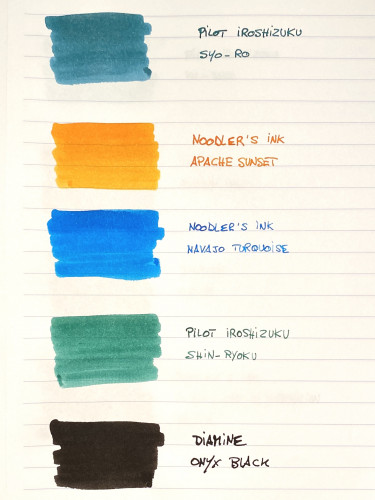 PILOT IROSHIZUKU
SYO-RO
NOODLER'S INK
APACHE SUNSET
NOODLER'S INK
NAVAJO TURQUOISE
PILOT IROSHIZUKU
SHIN-RYOKU
DIAMINE
ONYX BLACK